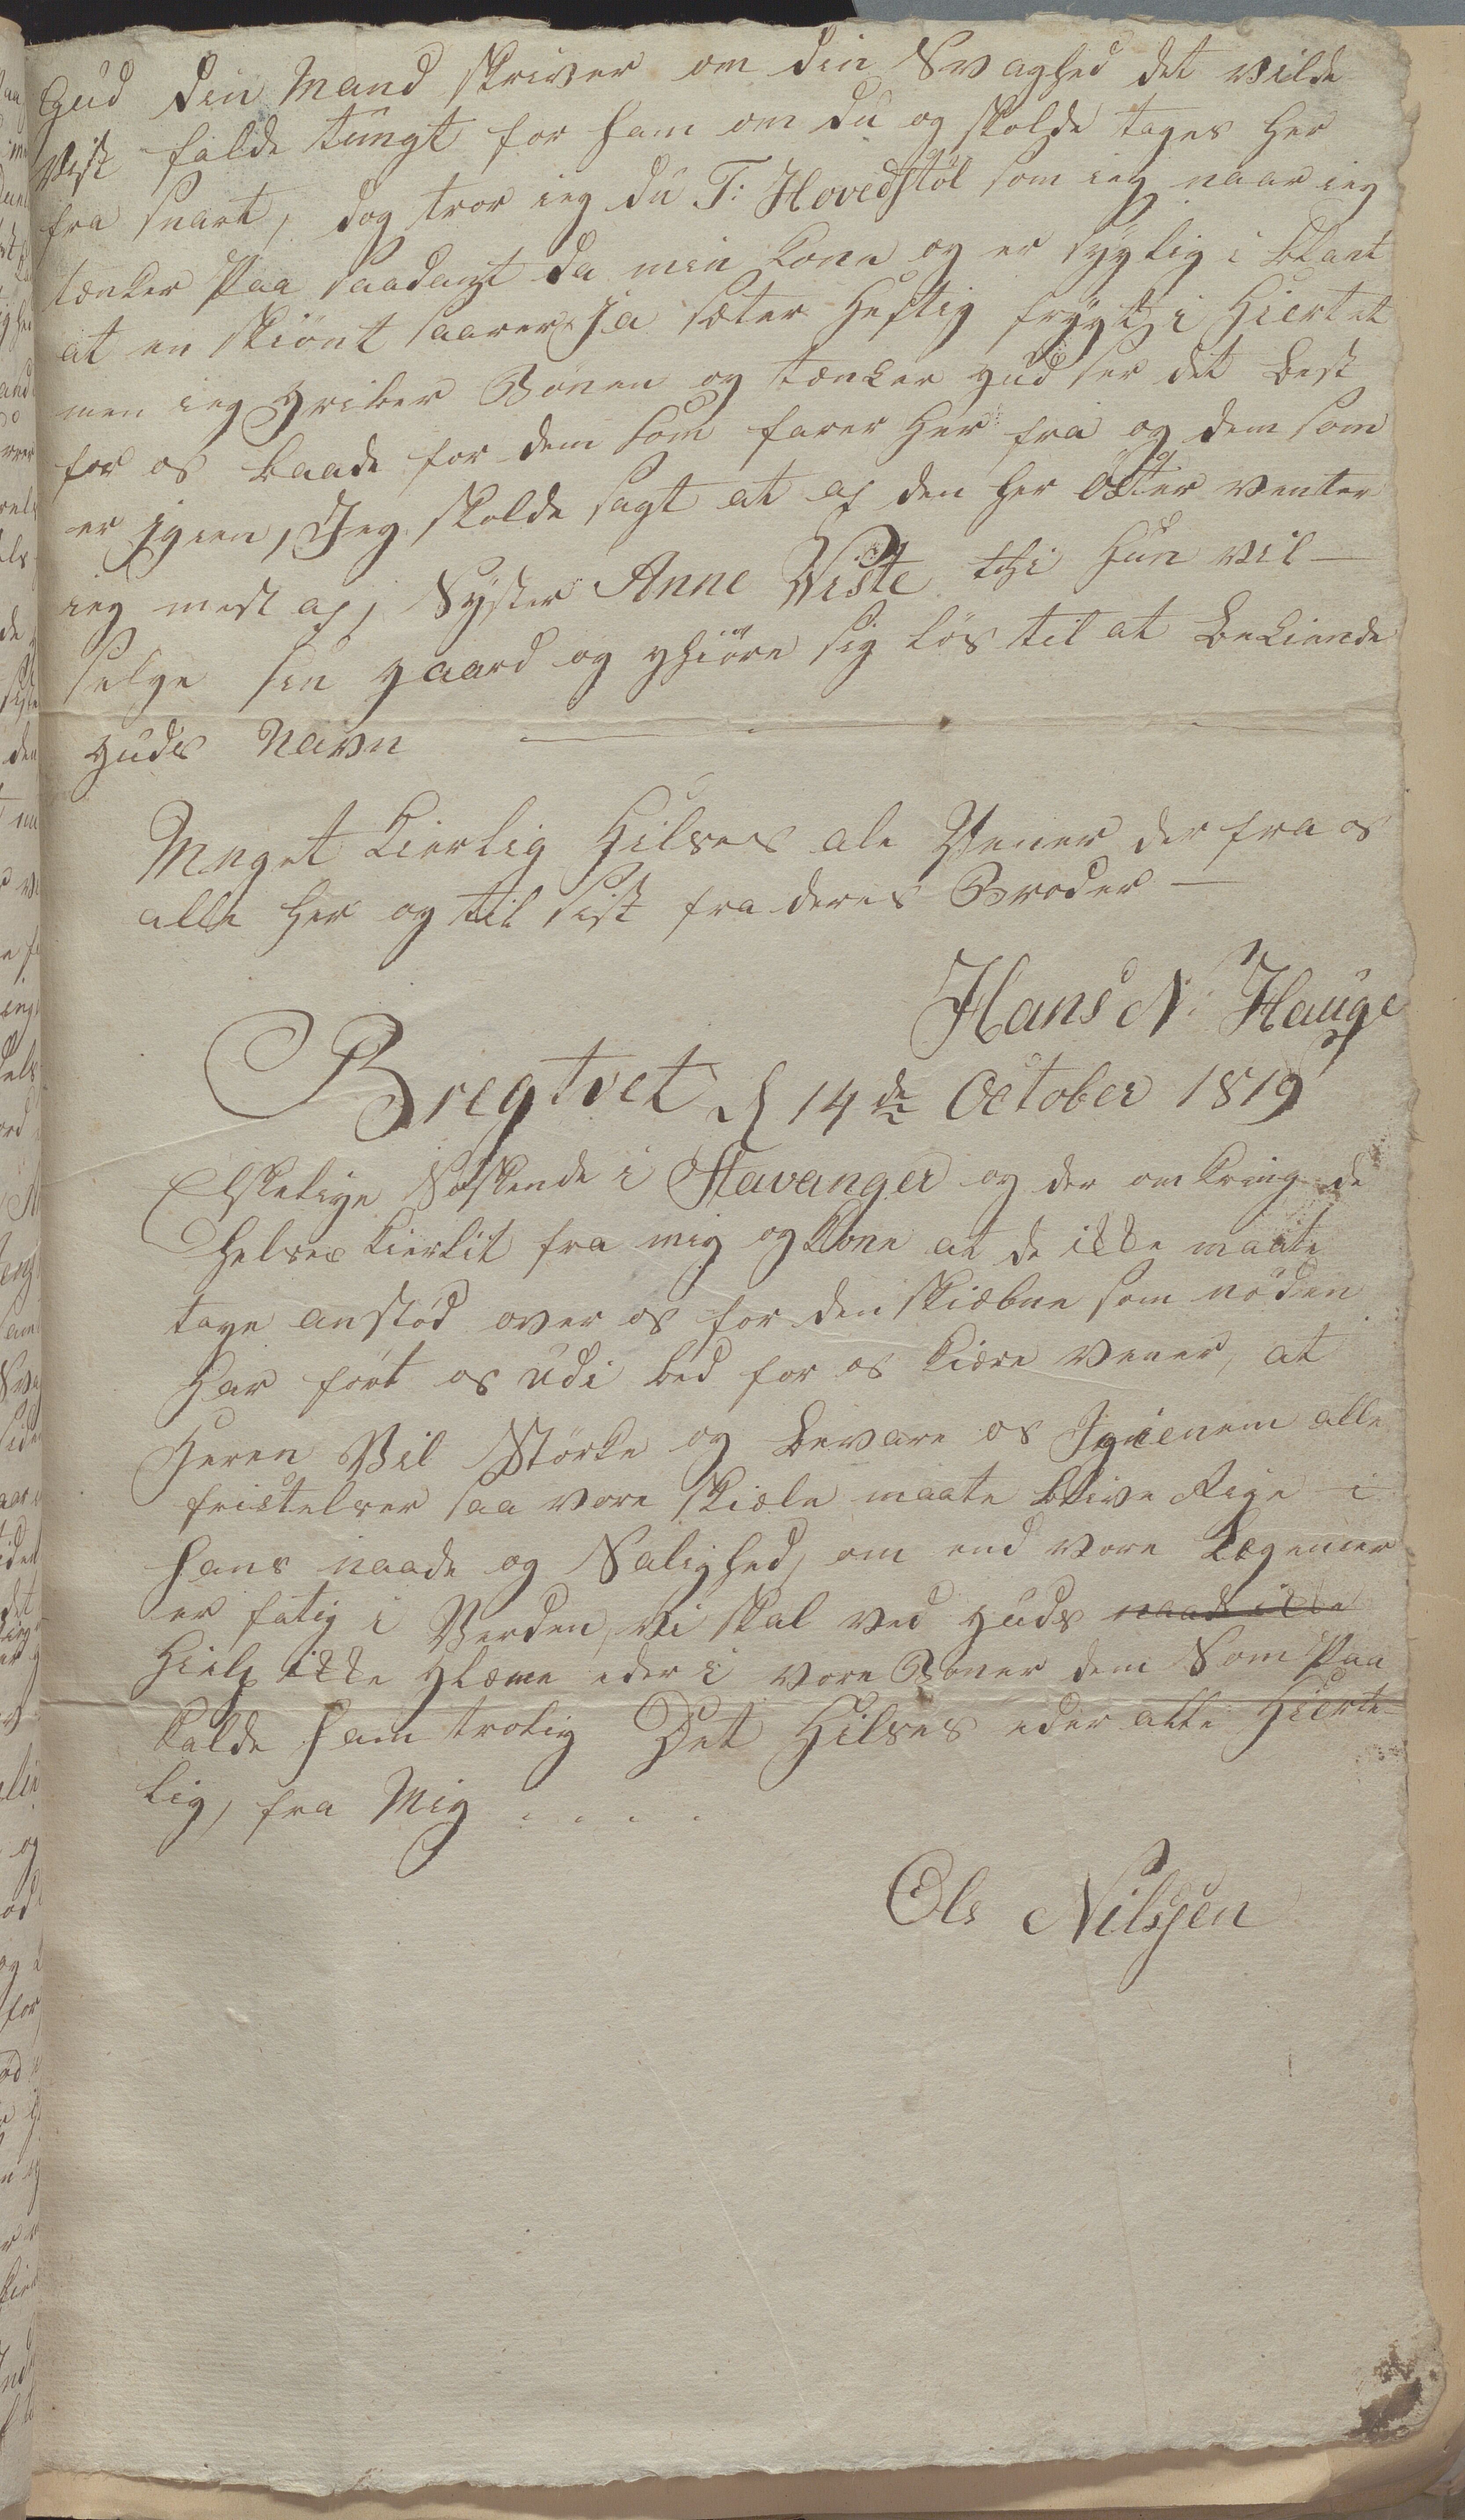 Gud din Mand skriver om din Svaghed det vilde
vist falde tungt for ham om du og skolde tages her
fra snart, dog tror ieg du T: Hovedstöl som ieg naar ieg
tænker Paa saadant da min kone og er sygelig i blant
at en skiönt saarer Ja sæter heftig frygt i Hiertet
men ieg griber Bönen og tænker gud ser det best
for os baade for dem som farer her fra og dem som
er igien, Jeg skolde sagt at af den her efter venter
ieg mest af, Syster Anne Viste thi hun vil —
selge sin gaard og ghiöre sig lös til at bekiende
guds Navn
Meget kierlig Hilses ale Vener der fra os
alle her og til sist fra deres Broder —
Hans N: Hauge
Bregtvet d 14de October 1819
Elskelige Söskende i Stavanger og der omkring de
helses kierlit fra mig og kone at de ikke maate
tage anstöd over os for den skiæbne som nöden
har fört os udi bed for os kiære vener, at
Heren Vil Störke og bevare os Igienem alle
fristelser saa vore skiæle maate blive Rige i
hans naade og Salighed, om end vore Legemer
er fatig i Verden, vi skal ved guds naade ikke
Hielp ikke glæme eder i vore Böner dem Som Paa
kalde ham trolig Det Hilses eder alle Hierte
lig, fra Mig . . . .
Ole Nilssen